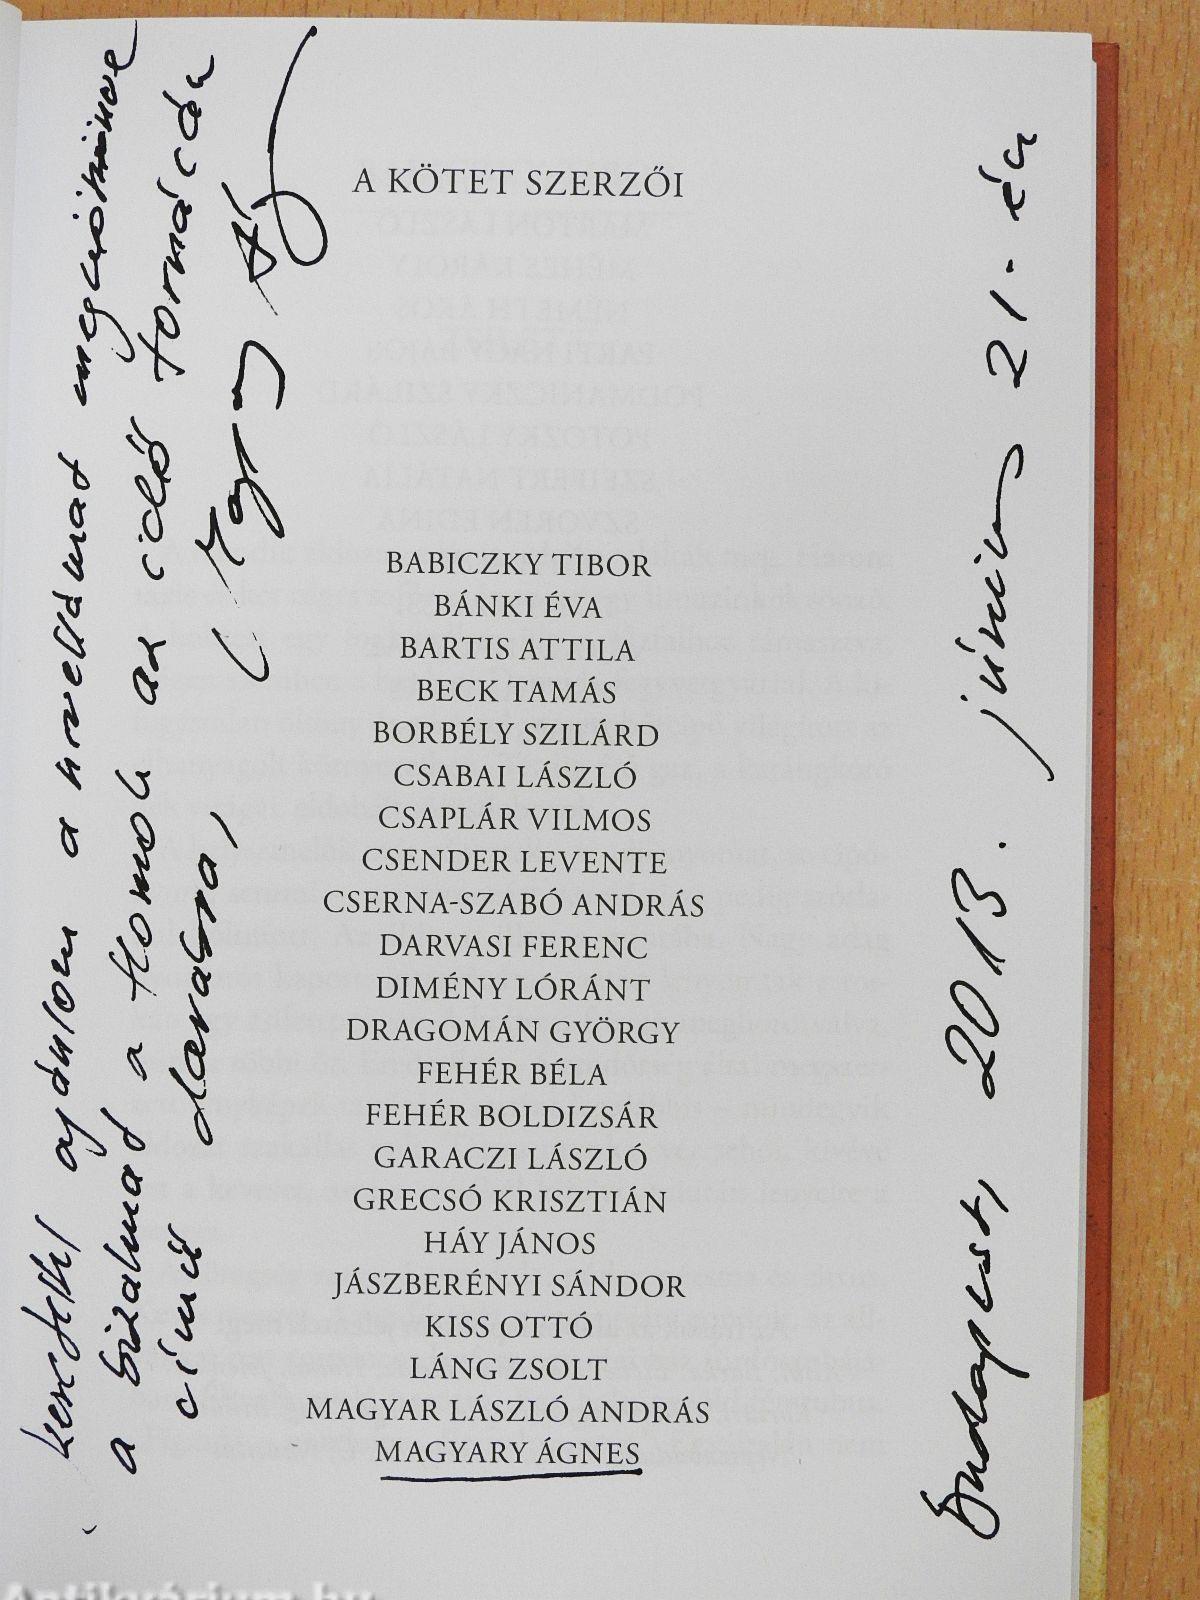 A KÖTET SZERZŐI
BABICZKY TIBOR
BÁNKI ÉVA
BARTIS ATTILA
BECK TAMÁS
BORBÉLY SZILÁRD
CSABAI LÁSZLÓ
CSAPLÁR VILMOS
CSENDER LEVENTE
CSERNA-SZABÓ ANDRÁS
DARVASI FERENC
DIMÉNY LÓRÁNT
DRAGOMÁN GYÖRGY
FEHÉR BÉLA
FEHÉR BOLDIZSÁR
GARACZI LÁSZLÓ
GRECSÓ KRISZTIÁN
HÁY JÁNOS
JÁSZBERÉNYI SÁNDOR
KISS OTTÓ
LÁNG ZSOLT
MAGYAR LÁSZLÓ ANDRÁS
MAGYARY ÁGNES
ajánlom a novellámat
a bizalmad a Homok az idő fogaskerekén
című darabra,
Budapest, 2013. június 21-én
Antikvárium.hu